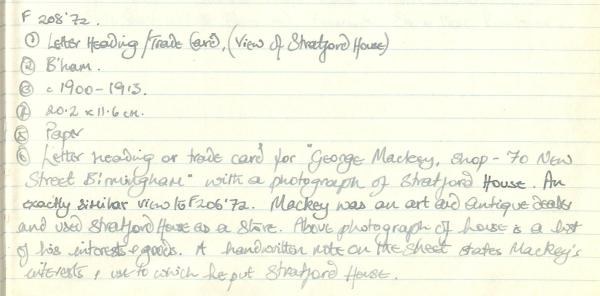 F 208'72.
① Letter Heading/Trade Card, (View of Stratford House)
② B'ham.
③ c 1900-1913.
④ 20.2 x 11.6 cm.
⑤ Paper
⑥ Letter heading or trade card for "George Mackey, shop - 70 New
Street Birmingham" with a photograph of Stratford House. An
exactly similar view to F206'72. Mackey was an art and antique dealer
and used Stratford House as a store. Above photograph of house is a list
of his interests & goods. A handwritten note on the sheet states Mackey's
interests & use to which he put Stratford House.